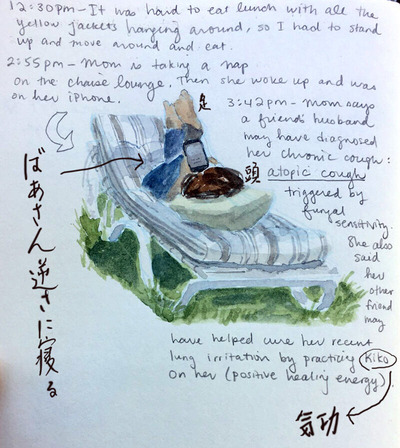 12:30pm - It was hard to eat lunch with all the
yellow jackets hanging around, so I had to stand
up and move around and eat.
2:55pm - Mom is taking a nap
on the chaise lounge. Then she woke up and was
on her iPhone.
足
3:42pm - Mom says
a friend's husband
may have diagnosed
her chronic cough:
atopic cough
triggered by
fungal
sensitivity.
She also
said
her
other
friend
may
have helped cure her recent
lung irritation by practicing Kiko
on her (positive healing energy).
頭
ばあさん逆さに寝る
気功